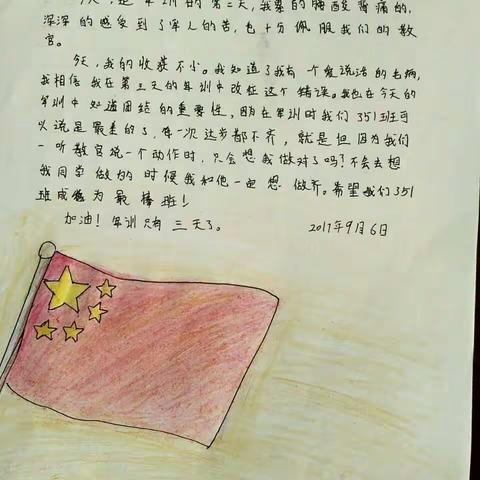 今天，是军训的第二天，我累的腰酸背痛的，
深深的感受到了军人的苦，也十分佩服我们的教
官。
今天，我的收获不小。我知道了我有一个爱说话的毛病，
我相信我在第三天的军训中改征这个错误。我也在今天的
军训中知道团结的重要性，因为在军训时我们351班可
以说是最差的了，每一次达步都不齐，就是但因为我们
一听教官说一个动作时，只会想我做对了吗？不会去想
我同学做的时候我和他一起想做齐。希望我们351
班成为最棒班！
加油！军训只有三天了。 2017年9月6日